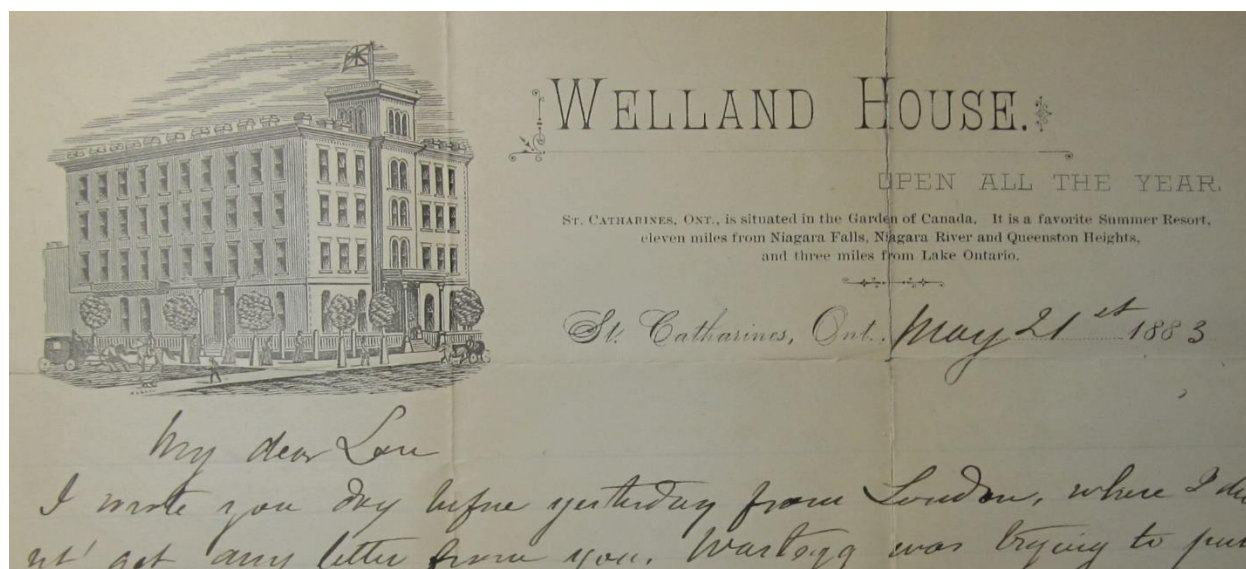 WELLAND HOUSE.
OPEN ALL THE YEAR.
ST. CATHARINES, ONT., is situated in the Garden of Canada. It is a favorite Summer Resort,
eleven miles from Niagara Falls, Niagara River and Queenston Heights,
and three miles from Lake Ontario.
St. Catharines, Ont., May 21st 1883
My dear Lou
I wrote you day before yesterday from London, where I did
nt' get any letter from you. was trying to